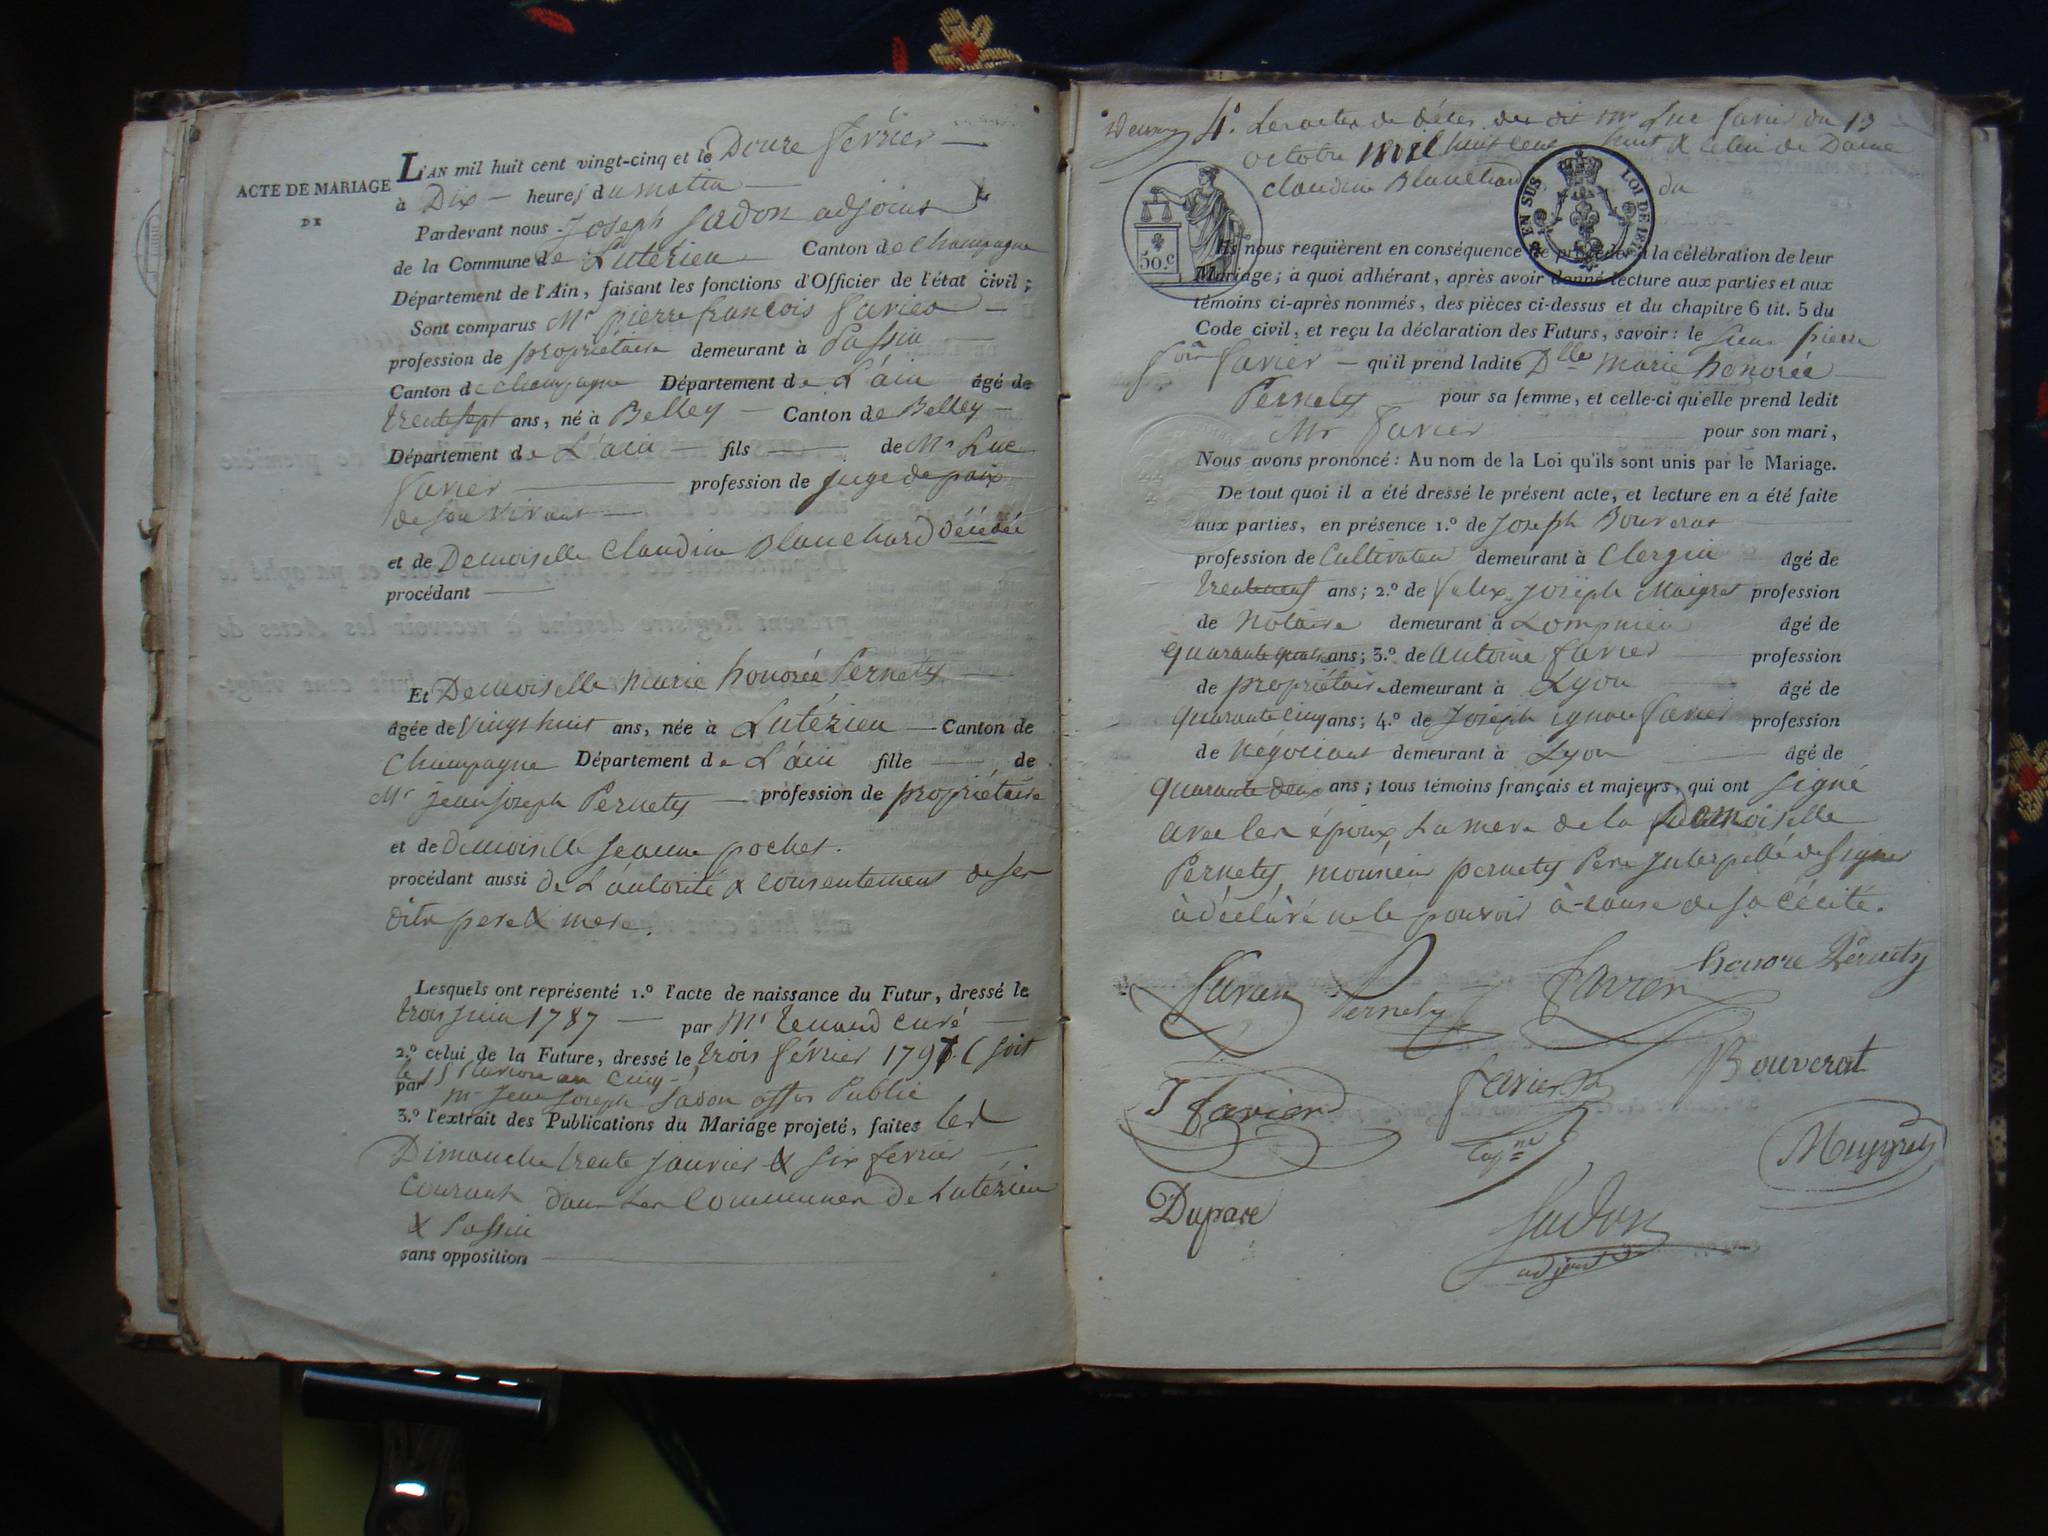 ACTE DE MARIAGE
DE
L'AN mil huit cent vingt-cinq et le Douze février
à Dix heures du matin
Pardevant nous Joseph Sadon adjoint
de la Commune de Lutézieu Canton de Champagne
Département de l'Ain, faisant les fonctions d'Officier de l'état civil;
Sont comparus Mr pierre françois favier
profession de propriétaire demeurant à Passin
Canton de champagne Département de L'ain âgé de
trente sept ans, né à Belley Canton de Belley
Département de L'ain fils de Mr Luc
favier profession de juge de paix
de son vivant
et de Demoiselle Claudine Blanchard décédée
procédant
Et Demoiselle marie honorée Pernety
âgée de vingt huit ans, née à Lutézieu Canton de
Champagne Département de L'ain fille de
Mr jean joseph Pernety profession de propriétaire
et de demoiselle jeanne pochet.
procédant aussi de L'autorité & consentement de ses
dits pere & mere.
Lesquels ont représenté 1.º l'acte de naissance du Futur, dressé le
trois juin 1787 par Mr curé
2.º celui de la Future, dressé le trois février 1797 (soit
le 15 an cinq
par mr jean joseph Sadon Public
3.º l'extrait des Publications du Mariage projeté, faites les
Dimanche trente janvier & six février
courant dans les Communes de Lutézieu
& Passin
sans opposition
4º. Les actes de décès du dit mr Luc favier du 13
octobre huit cent huit & celui de Dame
claudine Blanchard du
50.c
EN SUS LOI DE 1816
Ils nous requièrent en conséquence de procéder à la célébration de leur
Mariage; à quoi adhérant, après avoir donné lecture aux parties et aux
témoins ci-après nommés, des pièces ci-dessus et du chapitre 6 tit. 5 du
Code civil, et reçu la déclaration des Futurs, savoir: le sieur pierre
fois favier qu'il prend ladite Dlle marie honorée
Pernety pour sa femme, et celle-ci qu'elle prend ledit
Mr favier pour son mari,
Nous avons prononcé: Au nom de la Loi qu'ils sont unis par le Mariage.
De tout quoi il a été dressé le présent acte, et lecture en a été faite
aux parties, en présence 1.º de Joseph Bouverat
profession de Cultivateur demeurant à Clergin âgé de
trente neuf ans; 2.º de felix joseph Maigret profession
de Notaire demeurant à Lompnieu âgé de
quarante quatre ans; 3.º de antoine favier profession
de propriétaire demeurant à Lyon âgé de
quarante cinq ans; 4.º de joseph ignace favier profession
de négociant demeurant à Lyon âgé de
quarante deux ans; tous témoins français et majeurs, qui ont signé
avec les époux, La mere de la demoiselle
Pernety, monsieur pernety Pere interpellé de signer
à déclaré ne le pouvoir à cause de sa cécité.
favier Pernety favier honore Pernety
J favier favier Bouverat
Duparc Sadon
adjoint